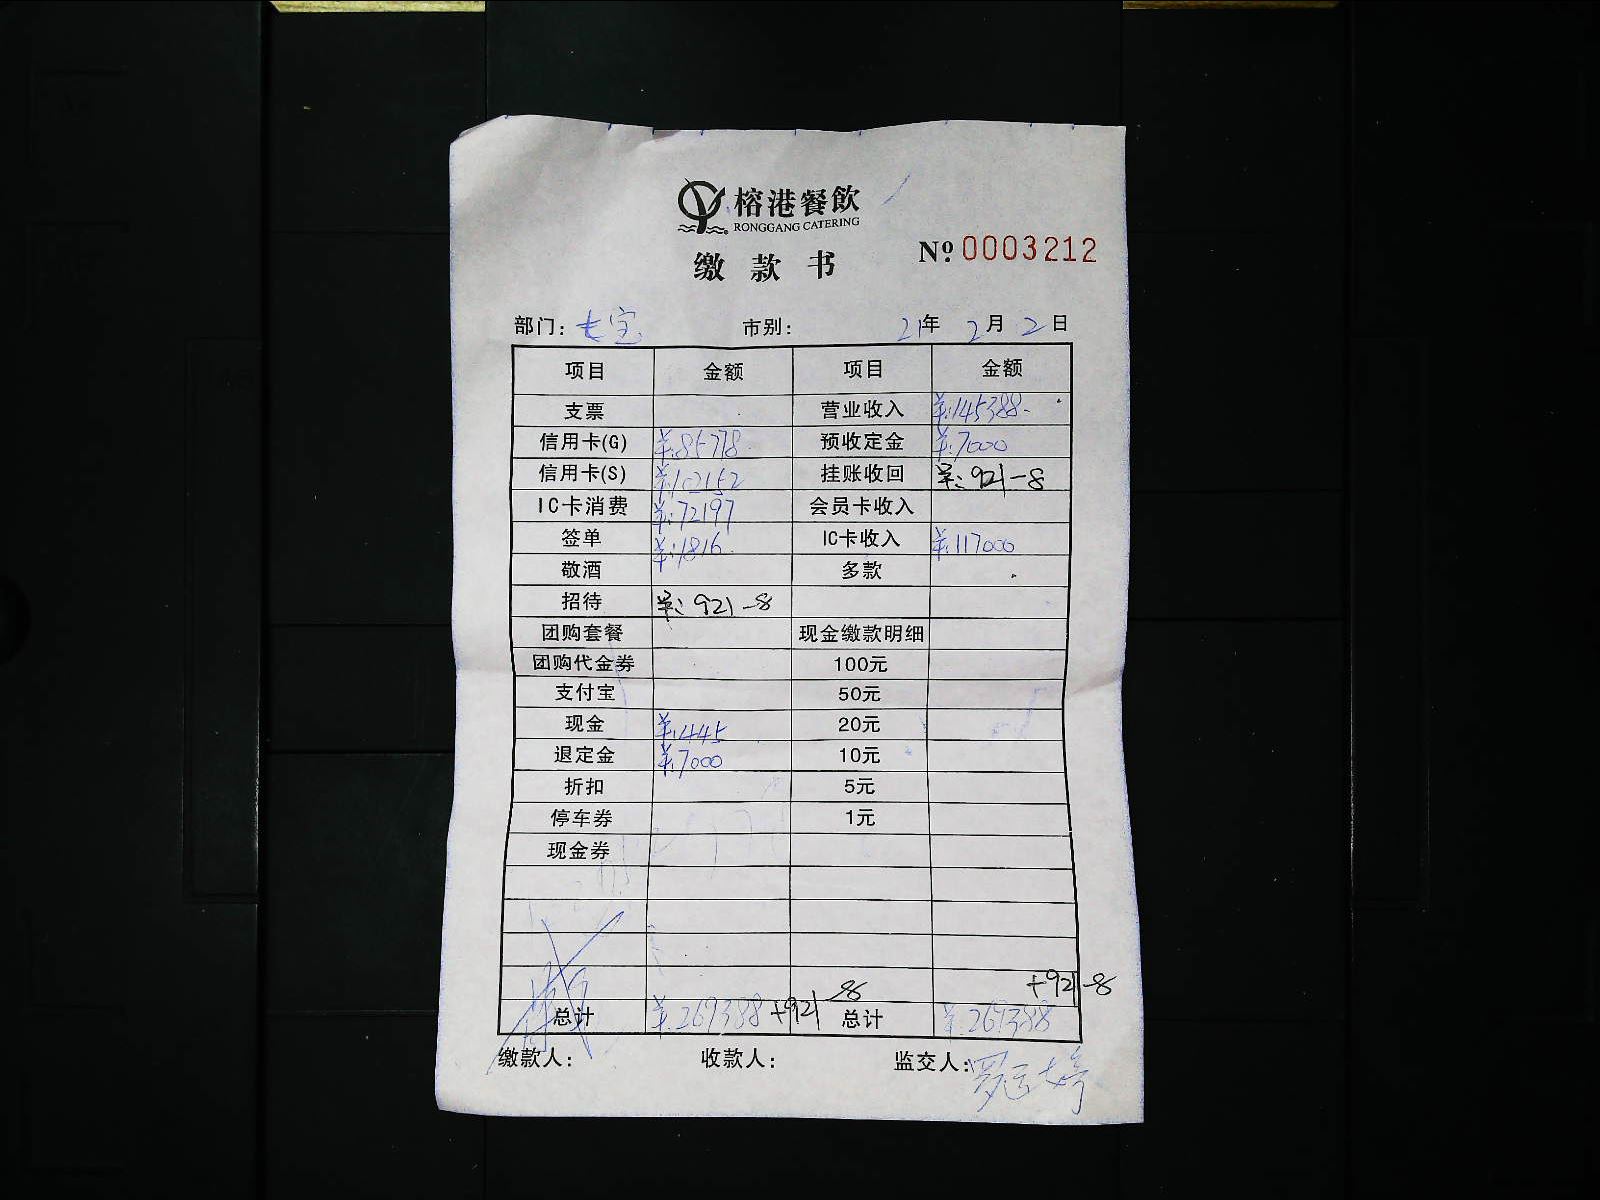 榕港餐飲
RONGGANG CATERING
缴款书
№ 0003212
部门: 市别: 21年 2月 2日
项目 金额 项目 金额
支票 营业收入 ¥:145388-
信用卡(G) ¥:85778- 预收定金 ¥:7000
信用卡(S) ¥:102152 挂账收回 ¥:921-8
IC卡消费 ¥:72197 会员卡收入
签单 ¥:1816- IC卡收入 ¥:117000
敬酒 多款
招待 ¥:921-8
团购套餐 现金缴款明细
团购代金券 100元
支付宝 50元
现金 ¥:445 20元
退定金 ¥:7000 10元
折扣 5元
停车券 1元
现金券
总计 ¥:269388+921-8 总计 ¥:269388+921-8
缴款人: 收款人: 监交人: